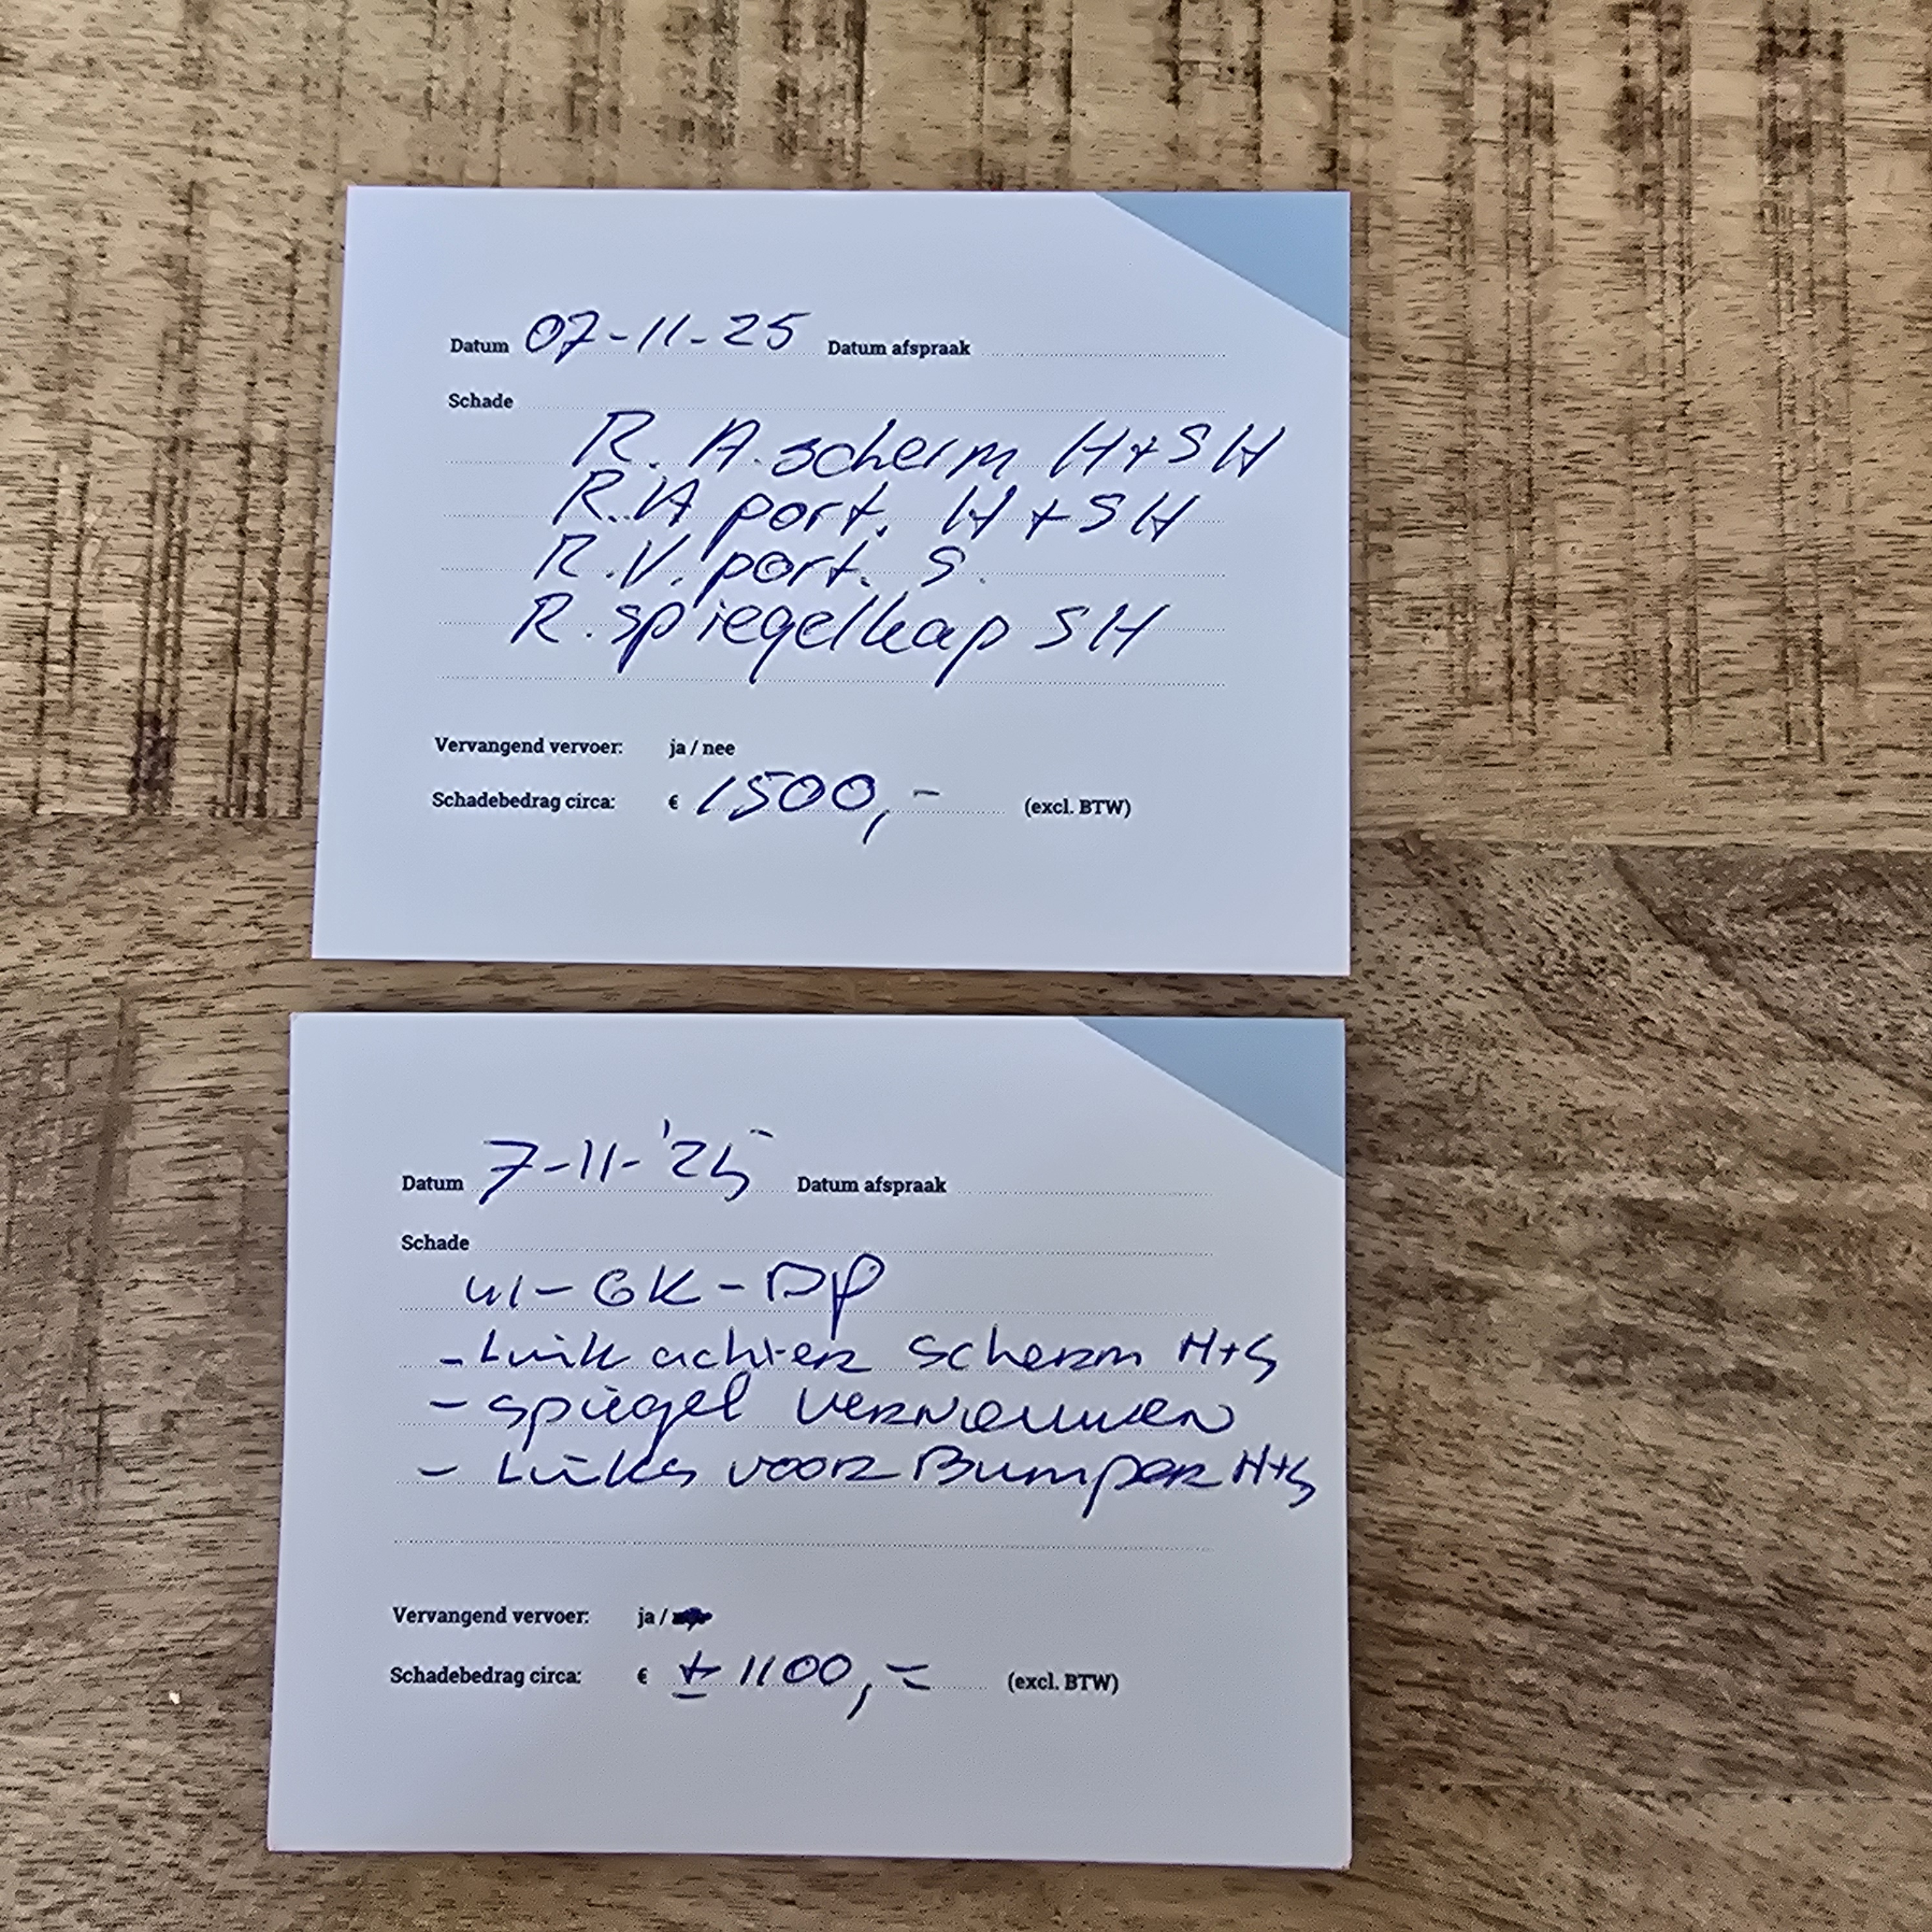 Datum 07-11-25 Datum afspraak
Schade
R. A. scherm H+SH
R.A port. H+SH
R.V. port. S.
R. spiegelkap SH
Vervangend vervoer: ja / nee
Schadebedrag circa: € 1500,- (excl. BTW)
Datum 7-11-'25 Datum afspraak
Schade
41-GK-DP
- Link achter scherm H+S
- spiegel vernieuwen
- Links voor Bumper H+S
Vervangend vervoer: ja /
Schadebedrag circa: € ± 1100,= (excl. BTW)